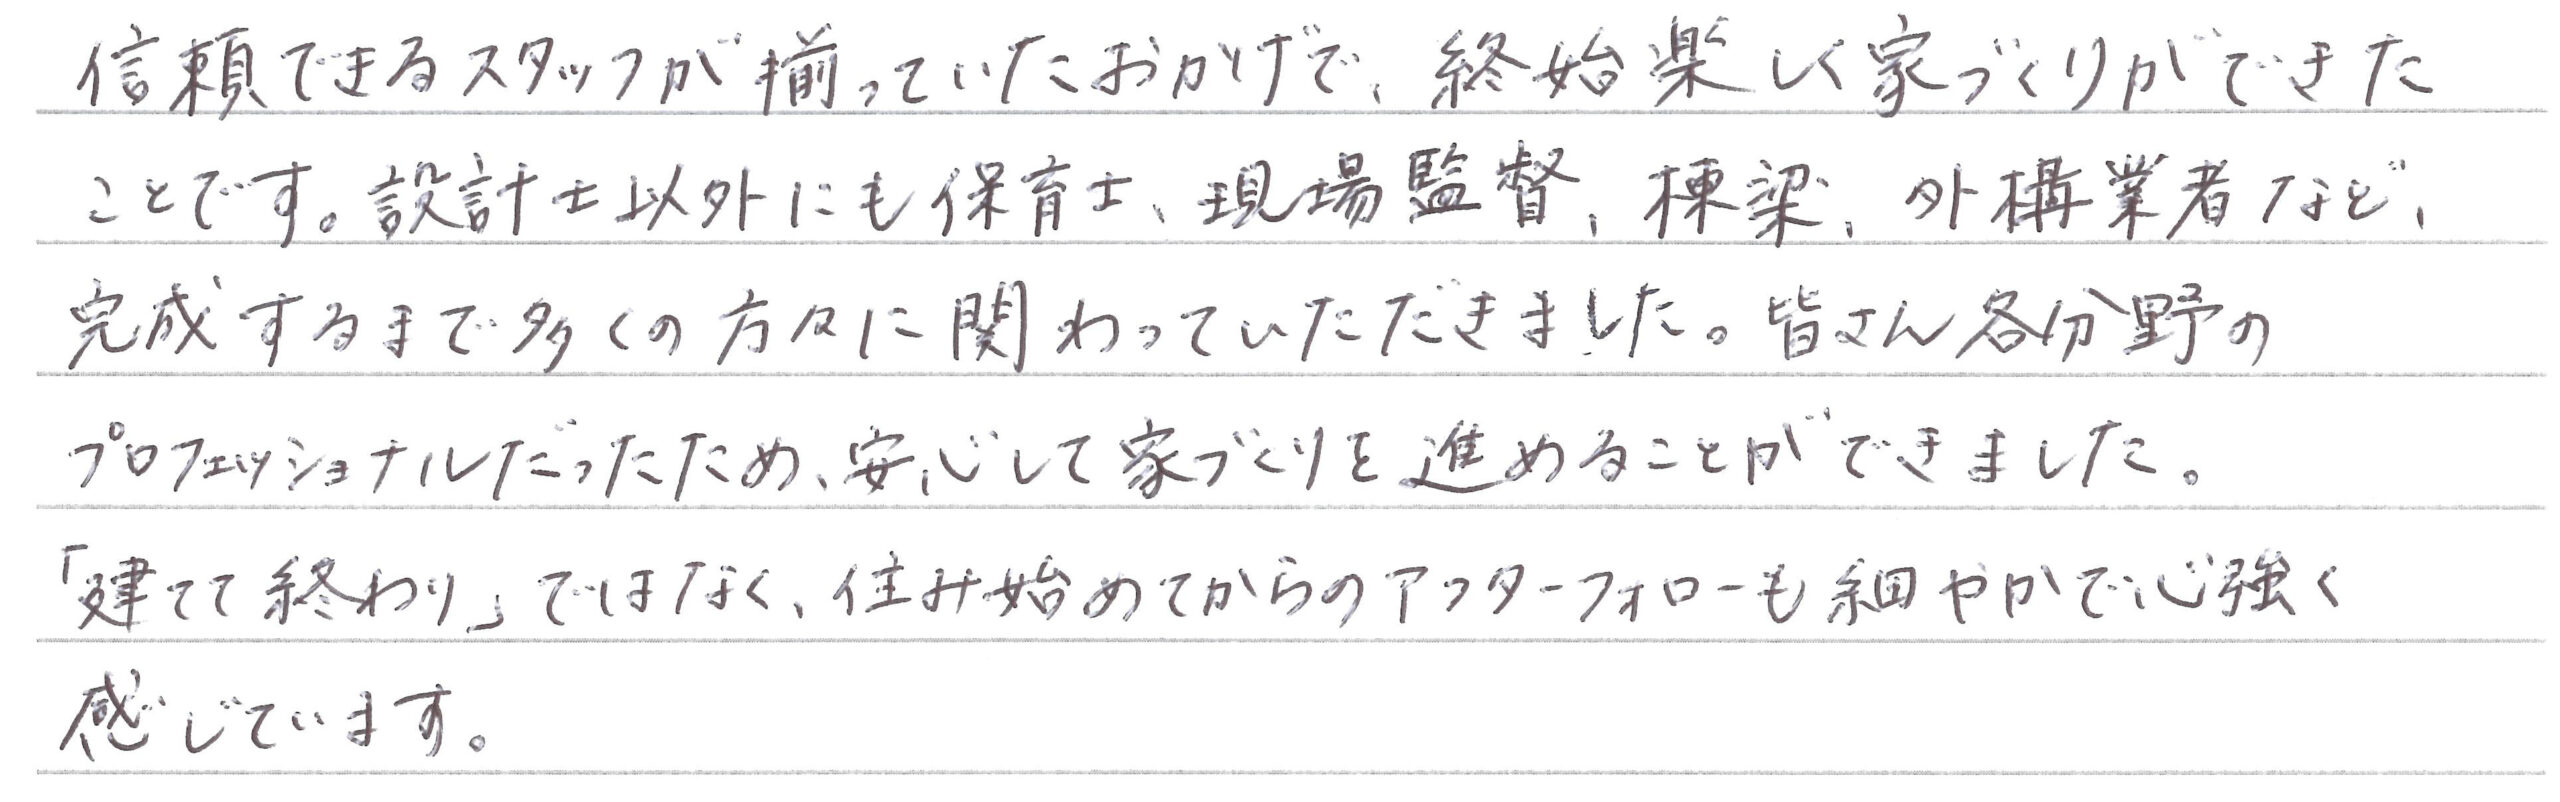 信頼できるスタッフが揃っていたおかげで、終始楽しく家づくりができた
ことです。設計士以外にも保育士、現場監督、棟梁、外構業者など、
完成するまで多くの方々に関わっていただきました。皆さん各分野の
プロフェッショナルだったため、安心して家づくりを進めることができました。
「建てて終わり」ではなく、住み始めてからのアフターフォローも細やかで心強く
感じています。